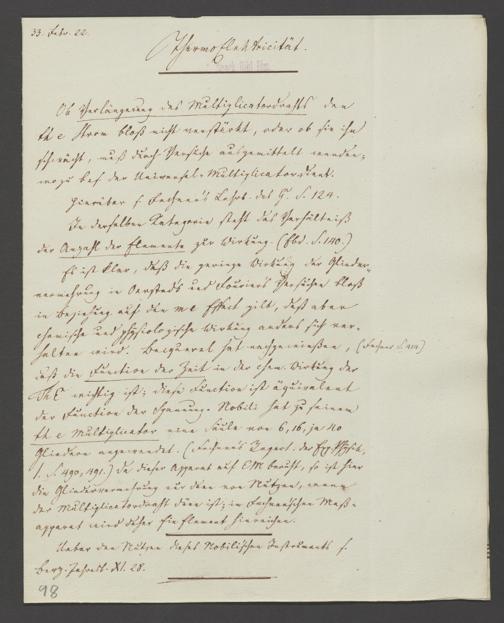 33. Febr. 22.
ThermoElektricität.
Ob Verlängerung des Multiplicatordrahts den
th e Strom bloß nicht verstärkt, oder ob sie ihn
schwächt, muß durch Versuche ausgemittelt werden;
wozu bes. der Universal-Multiplicator dient.
Hierüber s. Fechner's Lehrb. des G. S. 124.
In derselben Kategorie steht das Verhältniß
der Anzahl der Elemente zur Wirkung. (Ebd. S. 140.)
Es ist klar, daß die geringe Wirkung der Glieder-
vermehrung in Oersted's und Fourier's Versuchen bloß
in Beziehung auf den m e Effect gilt, daß aber
chemische und physiologische Wirkung anders sich ver-
halten wird. Becquerel hat nachgewiesen, (Fechner S.
daß die Function der Zeit in der chem. Wirkung der
ThE wichtig ist; diese Function ist äquivalent
der Function der Spannung. Nobili hat zu seinem
th e Multiplicator eine Säule von 6, 16, ja 40
Gliedern angewendet. (Fechner's Repert. der Exp. Physik,
1. S. 490, 491.) Da dieser Apparat auf EM beruht, so ist hier
die Gliedervermehrung nur dann von Nutzen, wenn
der Multiplicatordraht dünn ist; im Fechnerschen Maß-
apparat wird daher Ein Element hinreichen.
Ueber den Nutzen dieses Nobilischen Instruments s.
Berz. Jahresb. XI. 28.
98